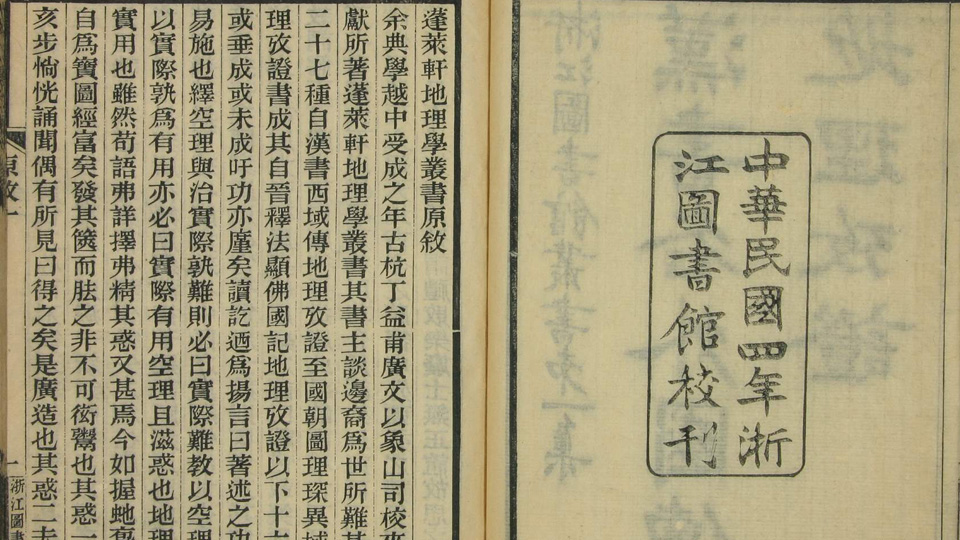 中華民國四年浙
江圖書館校刊
蓬萊軒地理學叢書原敘
余典學越中受成之年古杭丁益甫廣文以象山司校來
獻所著蓬萊軒地理學叢書其書主談邊裔為世所難其
二十七種自漢書西域傳地理攷證至國朝圖理琛異域
理攷證書成其自晉釋法顯佛國記地理攷證以下十六
或垂成或未成吁功亦廑矣讀訖迺為揚言曰著述之功
易施也繹空理與治實際孰難則必曰實際難教以空理
以實際孰為有用亦必曰實際有用空理且滋惑也地理
實用也雖然苟語弗詳擇弗精其惑又甚焉今如握虵
自為寶圖經富矣發其篋而胠之非不可衒鬻也其惑一
亥步惝恍誦聞偶有所見曰得之矣是廣造也其惑二
原敘
一
浙江圖書